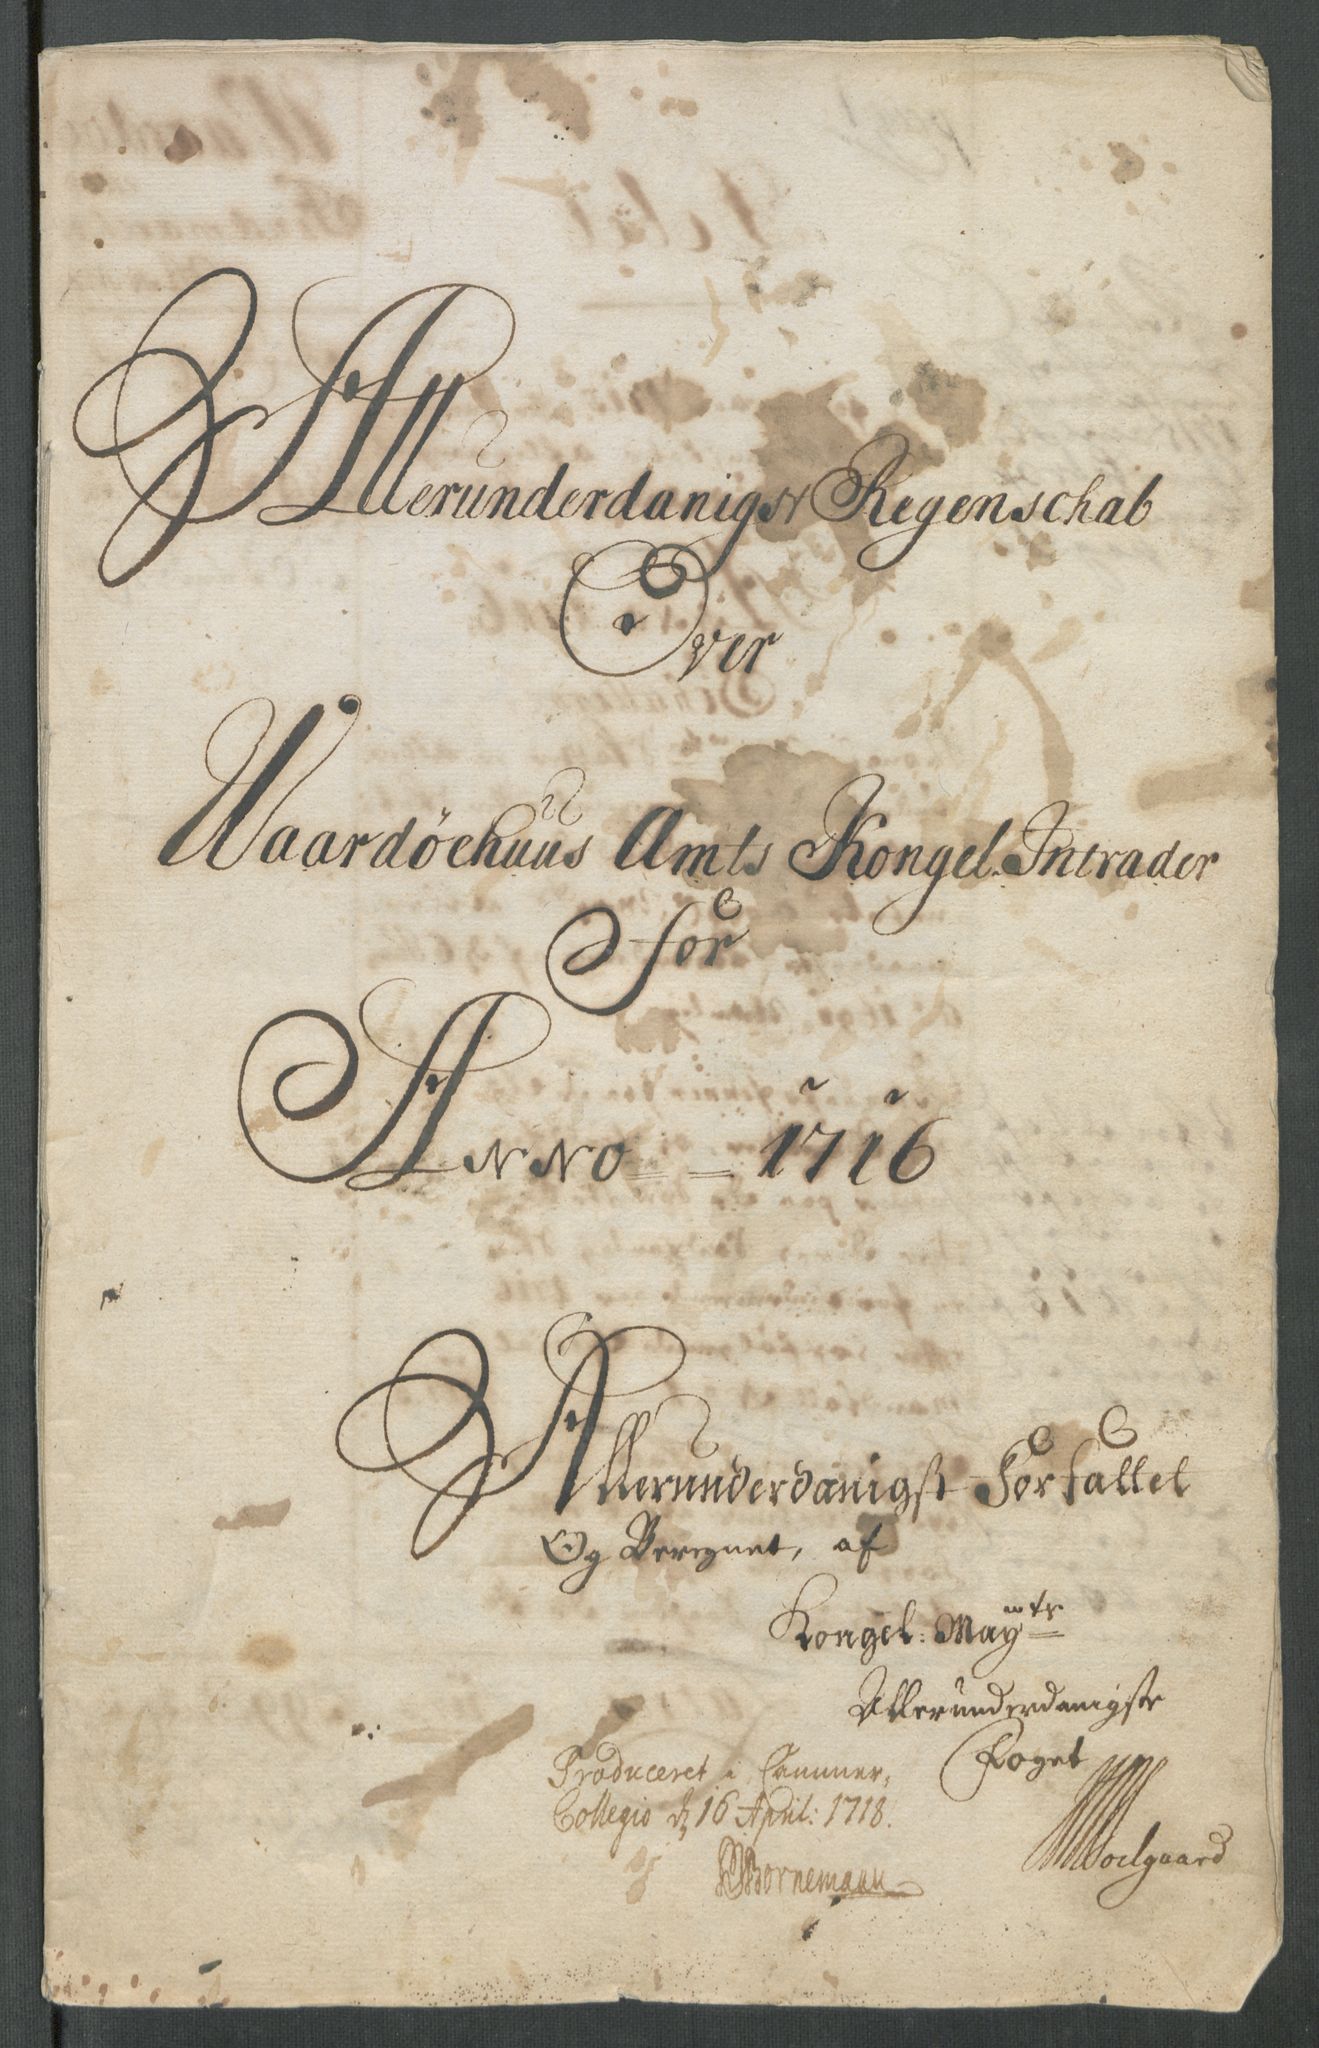 Allerunderdanigst Regenschab
Over
Waardöehuus Amts Kongel. Intrader
for
Anno == 1716
Allerunderdanigst Forfattet
Og Beregnet, af
Kongel: Mayts
Allerunderdanigste
Foget
Produceret i Cammer,
Collegio d 16 April: 1718.
Bornemann